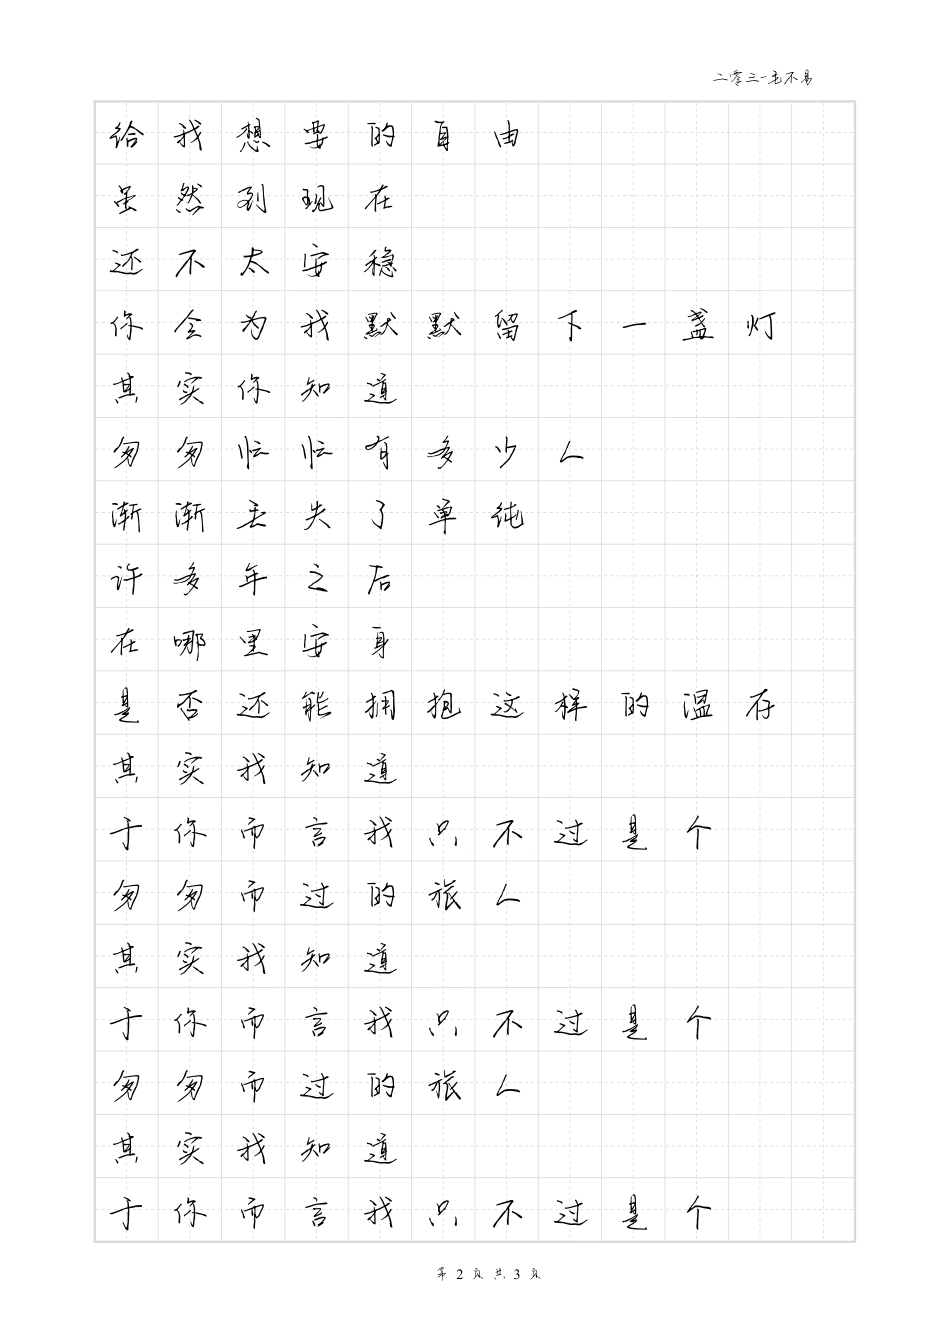 二零三-毛不易
给我想要的自由
虽然到现在
还不太安稳
你会为我默默留下一盏灯
其实你知道
匆匆忙忙有多少人
渐渐丢失了单纯
许多年之后
在哪里安身
是否还能拥抱这样的温存
其实我知道
于你而言我只不过是个
匆匆而过的旅人
其实我知道
于你而言我只不过是个
匆匆而过的旅人
其实我知道
于你而言我只不过是个
第 2 页 共 3 页